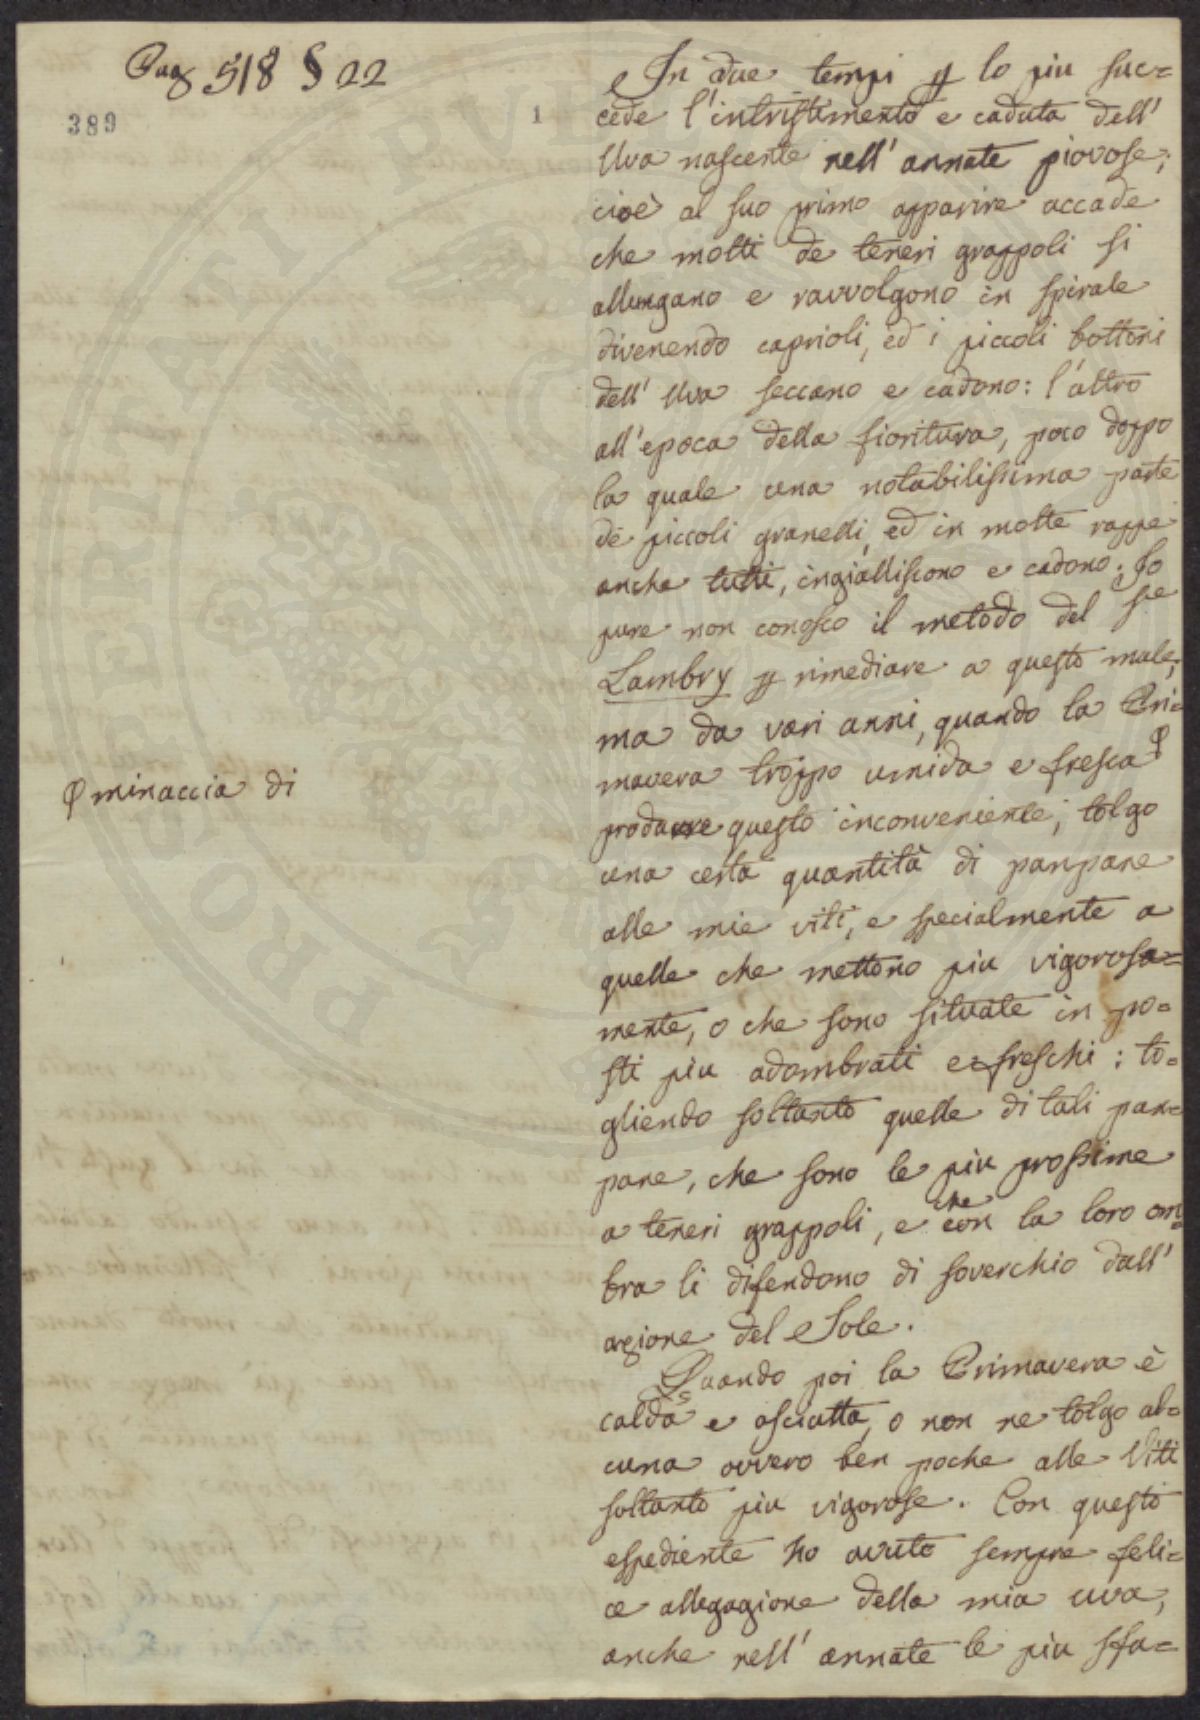 Pag 518 § 22
389
1
In due tempi p lo piu suc=
cede l'intristimento e caduta dell'
Uva nascente nell'annate piovose;
cioè al suo primo apparire accade
che molti de teneri grappoli si
allungano e ravvolgono in spirale
divenendo caprioli, ed i piccoli bottoni
dell'Uva seccano e cadono: l'altro
all'epoca della fioritura, poco doppo
la quale una notabilissima parte
de piccoli granelli, ed in molte rappe
anche tutti, ingialliscono e cadono; Io
pure non conosco il metodo del Sre
Lambry p rimediare a questo male;
ma da vari anni, quando la Pri=
mavera troppo umida e fresca φ
φ minaccia di
produrre questo inconveniente; tolgo
una certa quantità di panpane
alle mie viti, e specialmente a
quelle che mettono piu vigorosa=
mente, o che sono situate in po=
sti piu adombrati e freschi: to=
gliendo soltanto quelle di tali pan=
pane, che sono le piu prossime
a teneri grappoli, e che con la loro om=
bra li difendono di soverchio dall'
azione del Sole.
Quando poi la Primavera è
calda e asciutta, o non ne tolgo al=
cuna ovvero ben poche alle Viti
soltanto piu vigorose. Con questo
espediente ho avuto sempre feli=
ce allegagione della mia uva,
anche nell'annate le piu sfa=